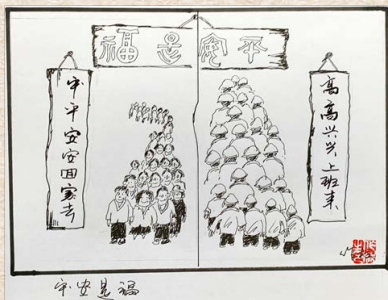 平安是福
高高兴兴上班来
平平安安回家去
平安是福